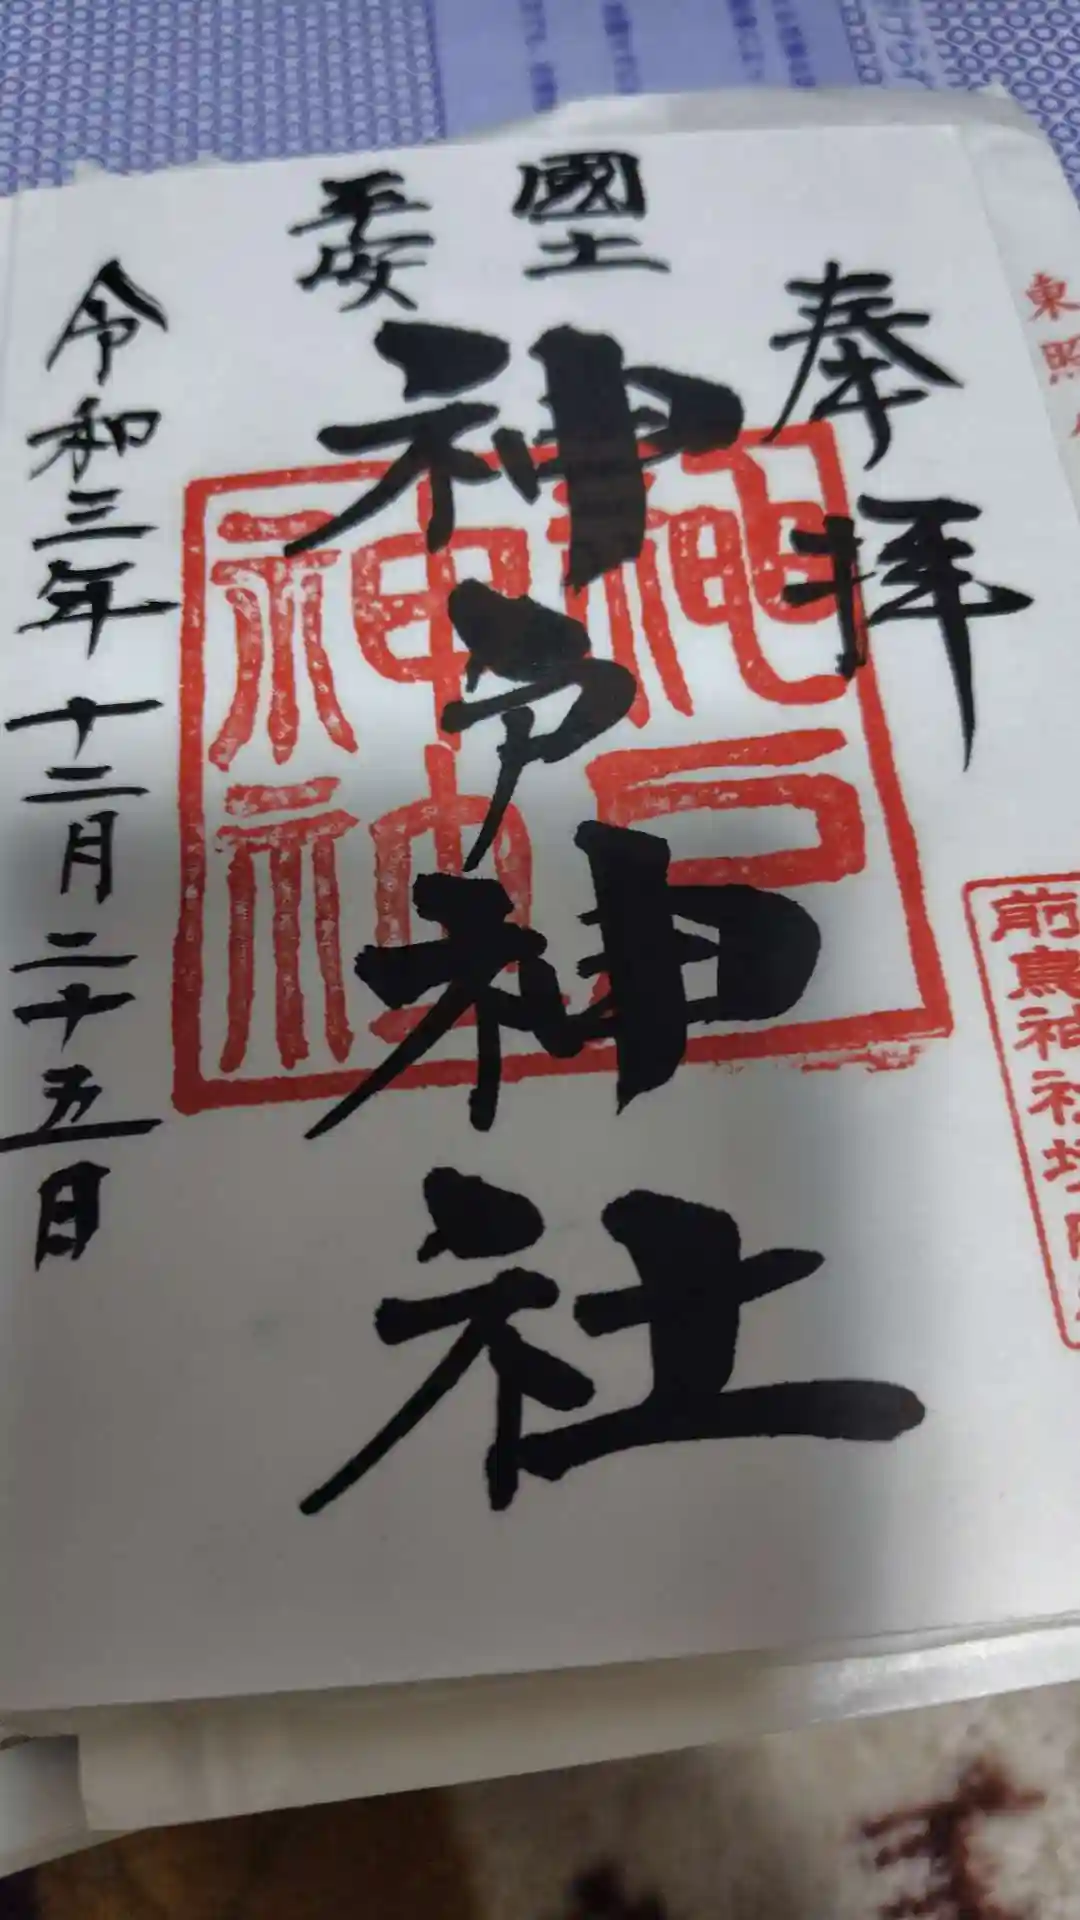 奉拝
國土
平安
神戸神社
令和三年十二月二十五日
神戸
神社
東照
前鳥神社境内